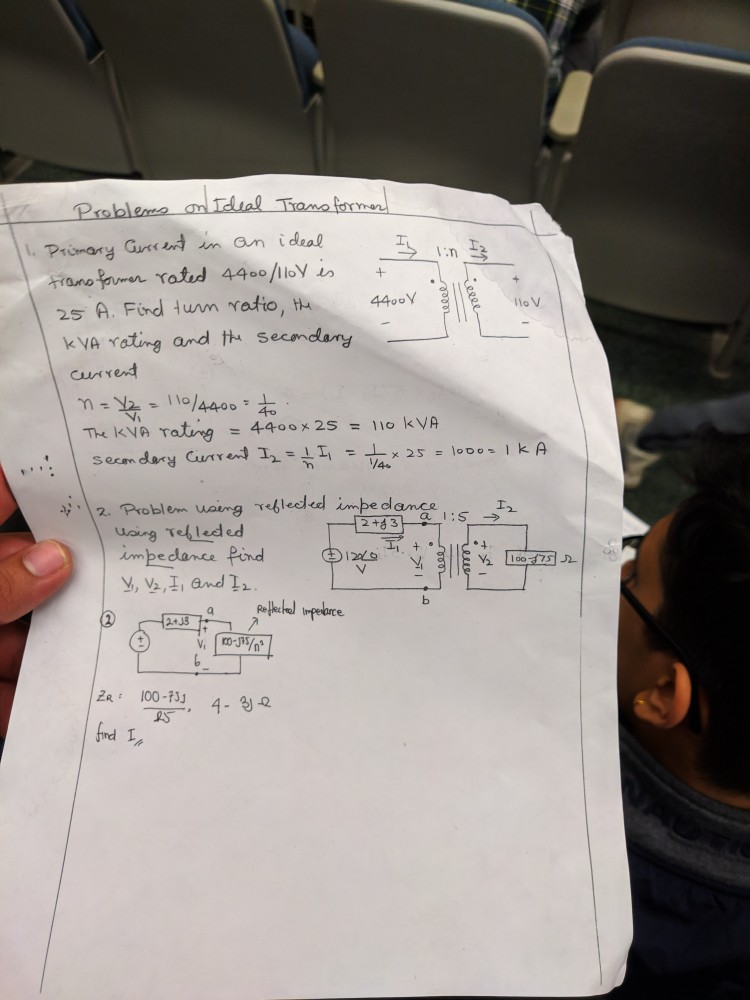 Problems on Ideal Transformer
1. Primary Current in an ideal
transformer rated 4400/110V is
25 A. Find turn ratio, the
kVA rating and the secondary
current
I₁ 1:n I₂
+ +
4400V 110V
- -
n = V₂/V₁ = 110/4400 = 1/40.
The kVA rating = 4400 × 25 = 110 kVA
secondary Current I₂ = 1/n I₁ = 1/1/40 × 25 = 1000 = 1 k A
2. Problem using reflected impedance
using reflected
impedance find
V₁, V₂, I₁ and I₂.
2+j3 a 1:5 I₂
I₁ + +
120∠0 V V₁ V₂ 100-j75 Ω
- -
b
② Reflected impedance
2+j3 a
+
V₁ 100-j75/n²
b -
ZR = 100-75j/25, 4 - 3j Ω
find I